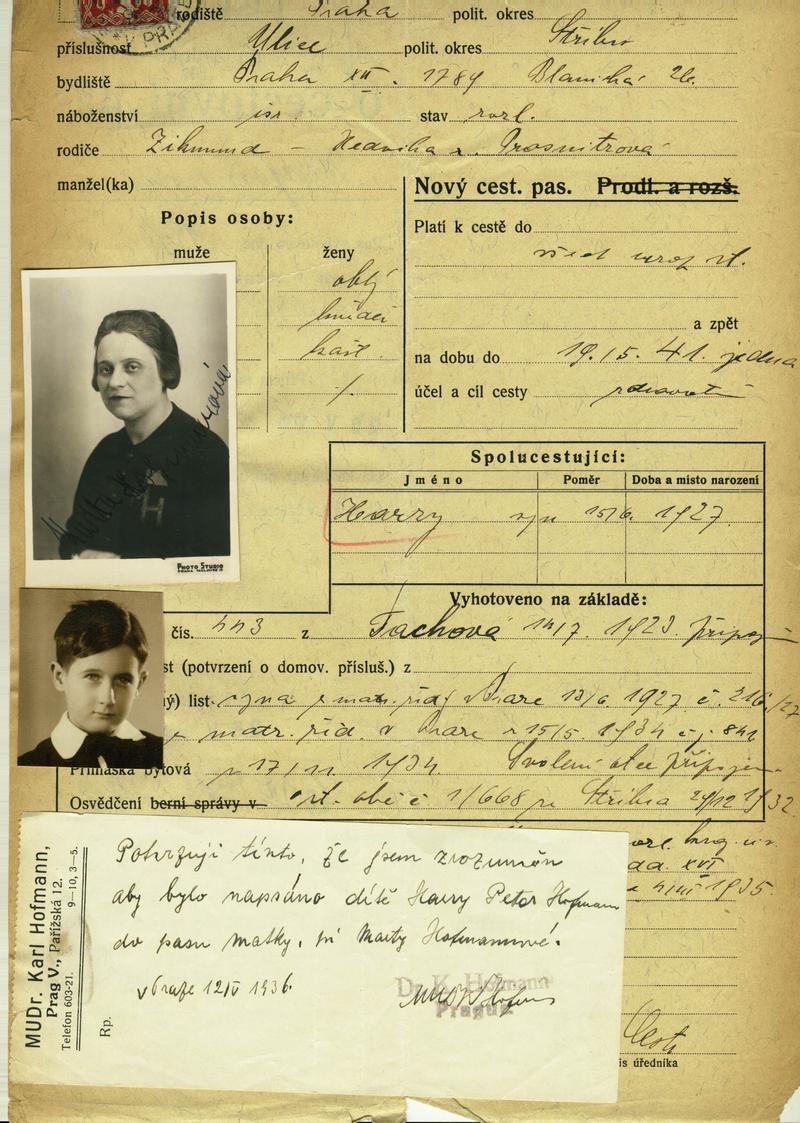 rodiště Praha polit. okres
příslušnost Ulice polit. okres Stříbro
bydliště Praha XII. 1789 Blanická 26.
náboženství isr. stav rozl.
rodiče Zikmund – Hedvika r. Prosnitzová
manžel(ka)
Nový cest. pas. Prodl. a rozš.
Popis osoby:
muže ženy
oblý
hnědé
kašt.
/.
Platí k cestě do
všech evrop. st.
a zpět
na dobu do 19./5. 41. jedna
účel a cíl cesty zdravotní
Marta Hofmannová
H
PHOTO STUDIO
Spolucestující:
Jméno Poměr Doba a místo narození
Harry syn 15/6. 1927.
Vyhotoveno na základě:
čís. 443 z Tachova 14/7. 1923. připoj
st (potvrzení o domov. přísluš.) z
ý) list syna z matr. žid. v Praze 13/6 1927 č. 216/27
z matr. žid. v Praze z 15/5. 1934 čj. 841
Přihláška bytová z 17/11. 1934. Svolení otce připojen
Osvědčení berní správy v st. obč. č 1/668 ze Stříbra 29/12 1932
XVI
1935.
MUDr. Karl Hofmann,
Prag V., Pařížská 12.
Telefon 603-21. 9–10, 3–5.
Rp.
Potvrzuji tímto, že jsem srozuměn
aby bylo napsáno dítě Harry Petr Hofmann
do pasu matky, pí Marty Hofmannové.
v Praze 12/V 1936.
Dr. K. Hofmann
Prague
is úředníka